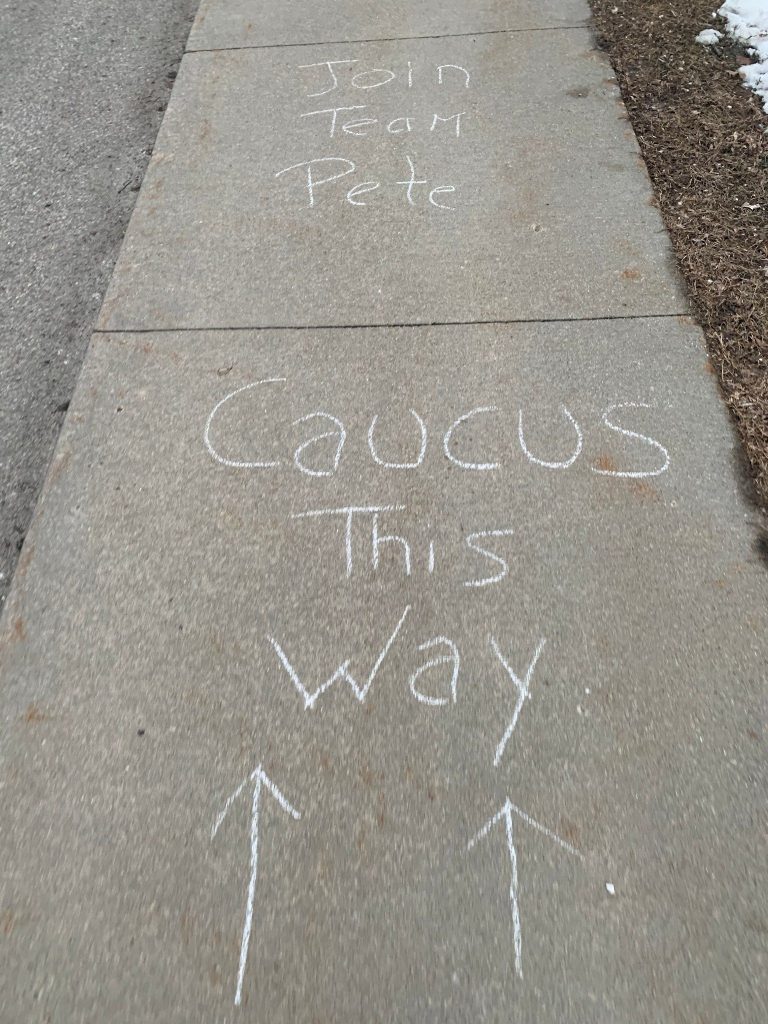 Join
Team
Pete
Caucus
This
Way